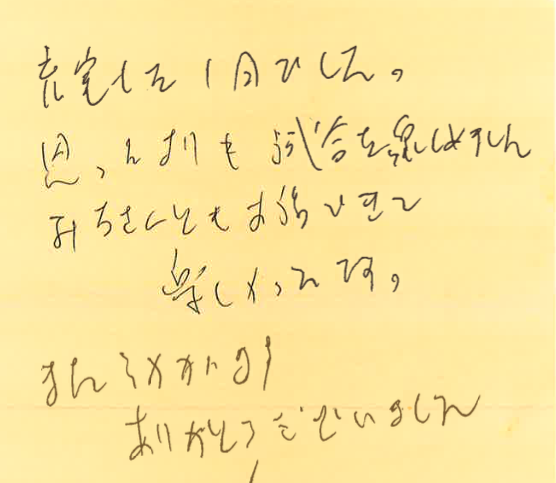 充実した1日でした。
思ったよりも試合を楽しめました
みちさんともお話できて
楽しかったです。
また
ありがとうございました